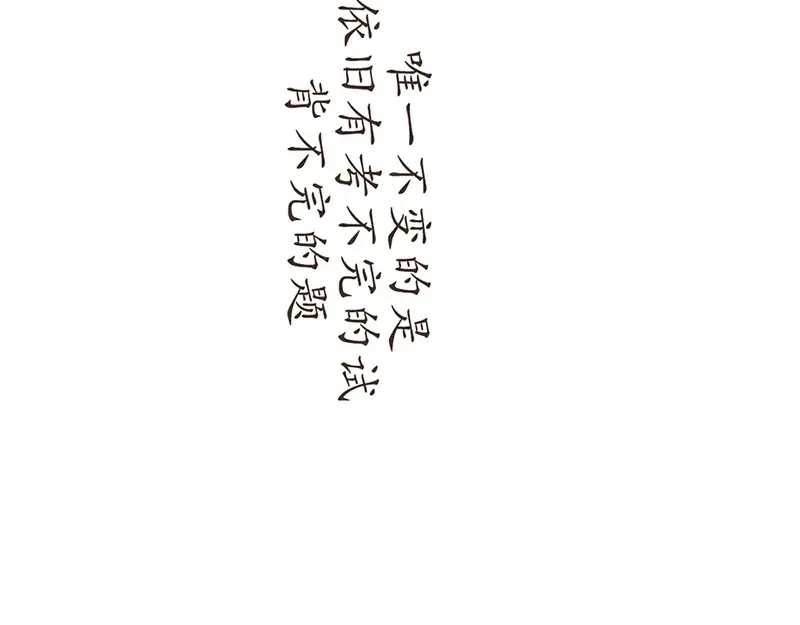 唯一不变的是
依旧有考不完的试
背不完的题